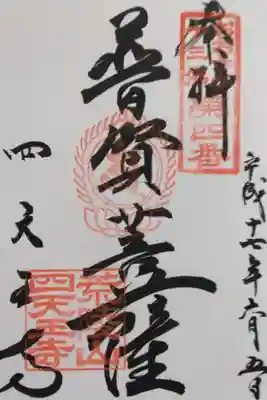 奉拝
平成十七年六月五日
普賢菩薩
四天王寺
荒陵山
四天王寺